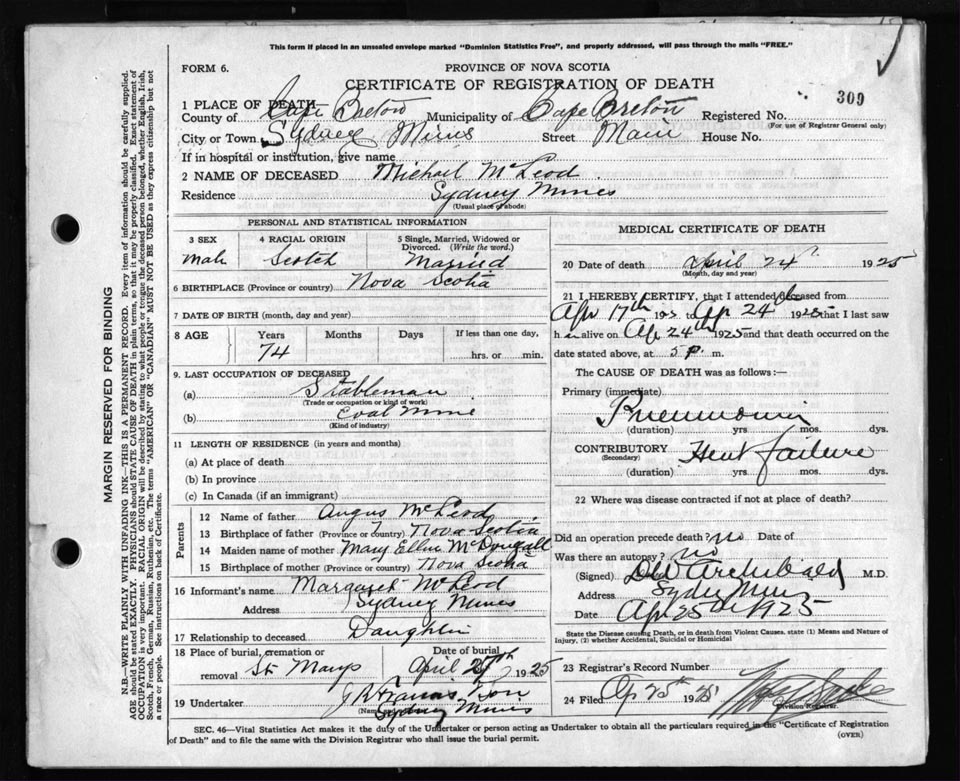 This form if placed in an unsealed envelope marked "Dominion Statistics Free", and properly addressed, will pass through the mails "FREE."
FORM 6.
PROVINCE OF NOVA SCOTIA
CERTIFICATE OF REGISTRATION OF DEATH
309
1 PLACE OF DEATH
County of Cape Breton Municipality of Cape Breton Registered No.
(For use of Registrar General only)
City or Town Sydney Mines Street Main House No.
If in hospital or institution, give name
2 NAME OF DECEASED Michael McLeod
Residence Sydney Mines
(Usual place of abode)
PERSONAL AND STATISTICAL INFORMATION
3 SEX
Male
4 RACIAL ORIGIN
Scotch
5 Single, Married, Widowed or Divorced. (Write the word.)
Married
6 BIRTHPLACE (Province or country) Nova Scotia
7 DATE OF BIRTH (month, day and year)
8 AGE Years Months Days If less than one day,
74
hrs. or min.
9. LAST OCCUPATION OF DECEASED
(a) Stableman
(Trade or occupation or kind of work)
(b) Coal Mine
(Kind of industry)
11 LENGTH OF RESIDENCE (in years and months)
(a) At place of death
(b) In province
(c) In Canada (if an immigrant)
Parents
12 Name of father Angus McLeod
13 Birthplace of father (Province or country) Nova Scotia
14 Maiden name of mother Mary Ellen McDougall
15 Birthplace of mother (Province or country) Nova Scotia
16 Informant's name Margaret McLeod
Address Sydney Mines
17 Relationship to deceased Daughter
18 Place of burial, cremation or removal St Marys
Date of burial
April 27th 1925
19 Undertaker J R Francis Son
Sydney Mines
MEDICAL CERTIFICATE OF DEATH
20 Date of death April 24th 1925
(Month, day and year)
21 I HEREBY CERTIFY, that I attended deceased from
Apr 17th 192 to Ap 24th 1925 that I last saw
him alive on Ap 24th 1925 and that death occurred on
date stated above, at 5 p. m.
The CAUSE OF DEATH was as follows:—
Primary (immediate)
Pneumonia
(duration) yrs mos. dys.
CONTRIBUTORY Heart failure
(Secondary)
(duration) yrs mos. dys.
22 Where was disease contracted if not at place of death?
Did an operation precede death? no Date of
Was there an autopsy? no
(Signed) Archibald M.D.
Address Sydney Mines
Date Ap 25th 1925
State the Disease causing Death, or in death from Violent Causes, state (1) Means and Nature of Injury, (2) whether Accidental, Suicidal or Homicidal
23 Registrar's Record Number
24 Filed Ap 25th 1925
Division Registrar.
SEC. 46—Vital Statistics Act makes it the duty of the Undertaker or person acting as Undertaker to obtain all the particulars required in the "Certificate of Registration
of Death" and to file the same with the Division Registrar who shall issue the burial permit.
(OVER)
MARGIN RESERVED FOR BINDING
N.B—WRITE PLAINLY WITH UNFADING INK—THIS IS A PERMANENT RECORD. Every item of information should be carefully supplied.
AGE should be stated EXACTLY. PHYSICIANS should STATE CAUSE OF DEATH in plain terms, so that it may be properly classified. Exact statement of
OCCUPATION is very important. RACIAL ORIGIN will be described by stating to what people or tongue the deceased person belonged, whether English, Irish,
Scotch, French, German, Russian, Ruthenian, etc. The terms "AMERICAN" OR "CANADIAN" MUST NOT BE USED as they express citizenship but not
a race or people. See instructions on back of Certificate.